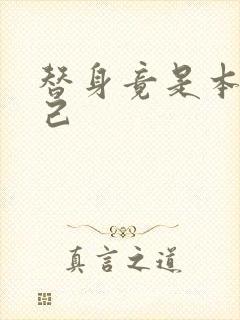 替身竟是本
己
真言之道